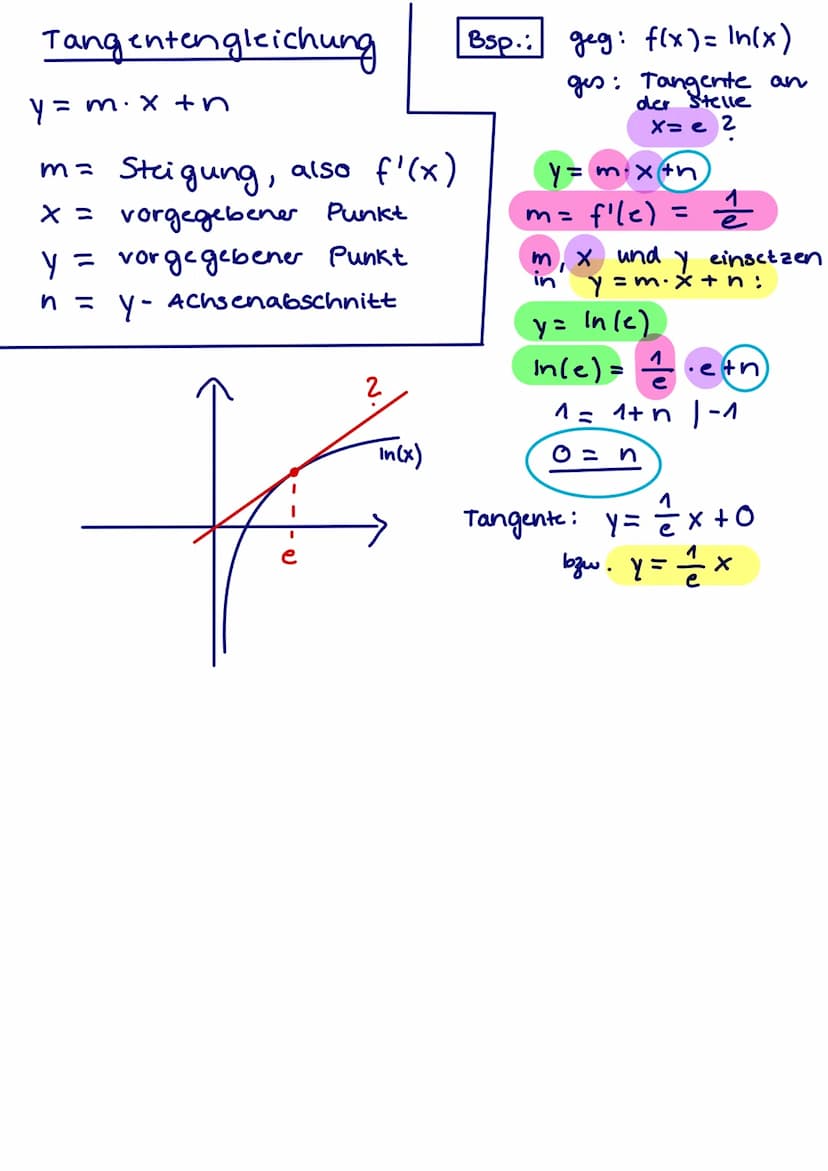 Tangentengleichung
y = m · x + n
m = Steigung, also f'(x)
x = vorgegebener Punkt
y = vorgegebener Punkt
n = y - Achsenabschnitt
?
ln(x)
e
Bsp.: geg: f(x) = ln(x)
ges: Tangente an
der Stelle
x = e ?
y = m · x + n
m = f'(e) = 1/e
m, x und y einsetzen
in y = m · x + n :
y = ln(e)
ln(e) = 1/e · e + n
1 = 1 + n | -1
0 = n
Tangente: y = 1/e x + 0
bzw. y = 1/e x